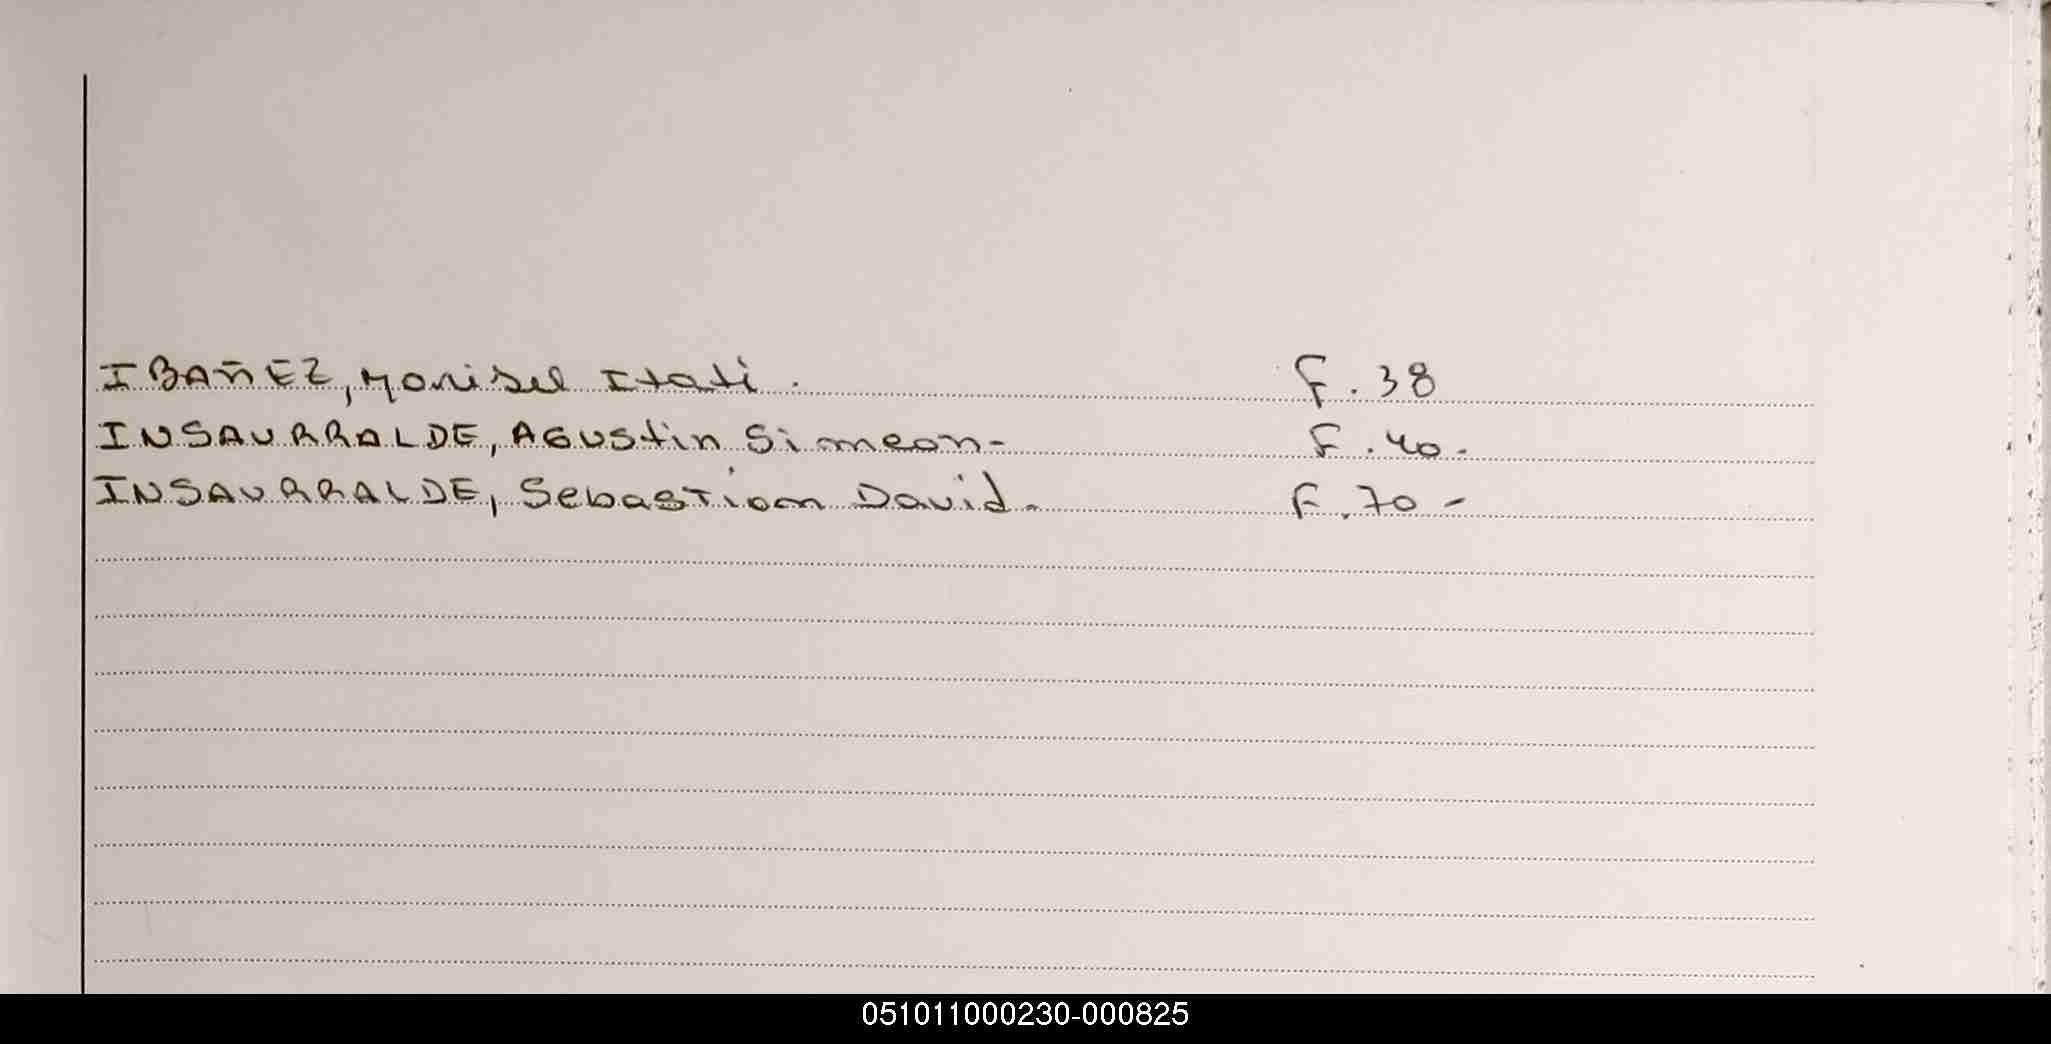 IBAÑEZ, Marisel Itati. F. 38
INSAURRALDE, Agustin Simeon- F. 40.
INSAURRALDE, Sebastian David. F. 70-
051011000230-000825